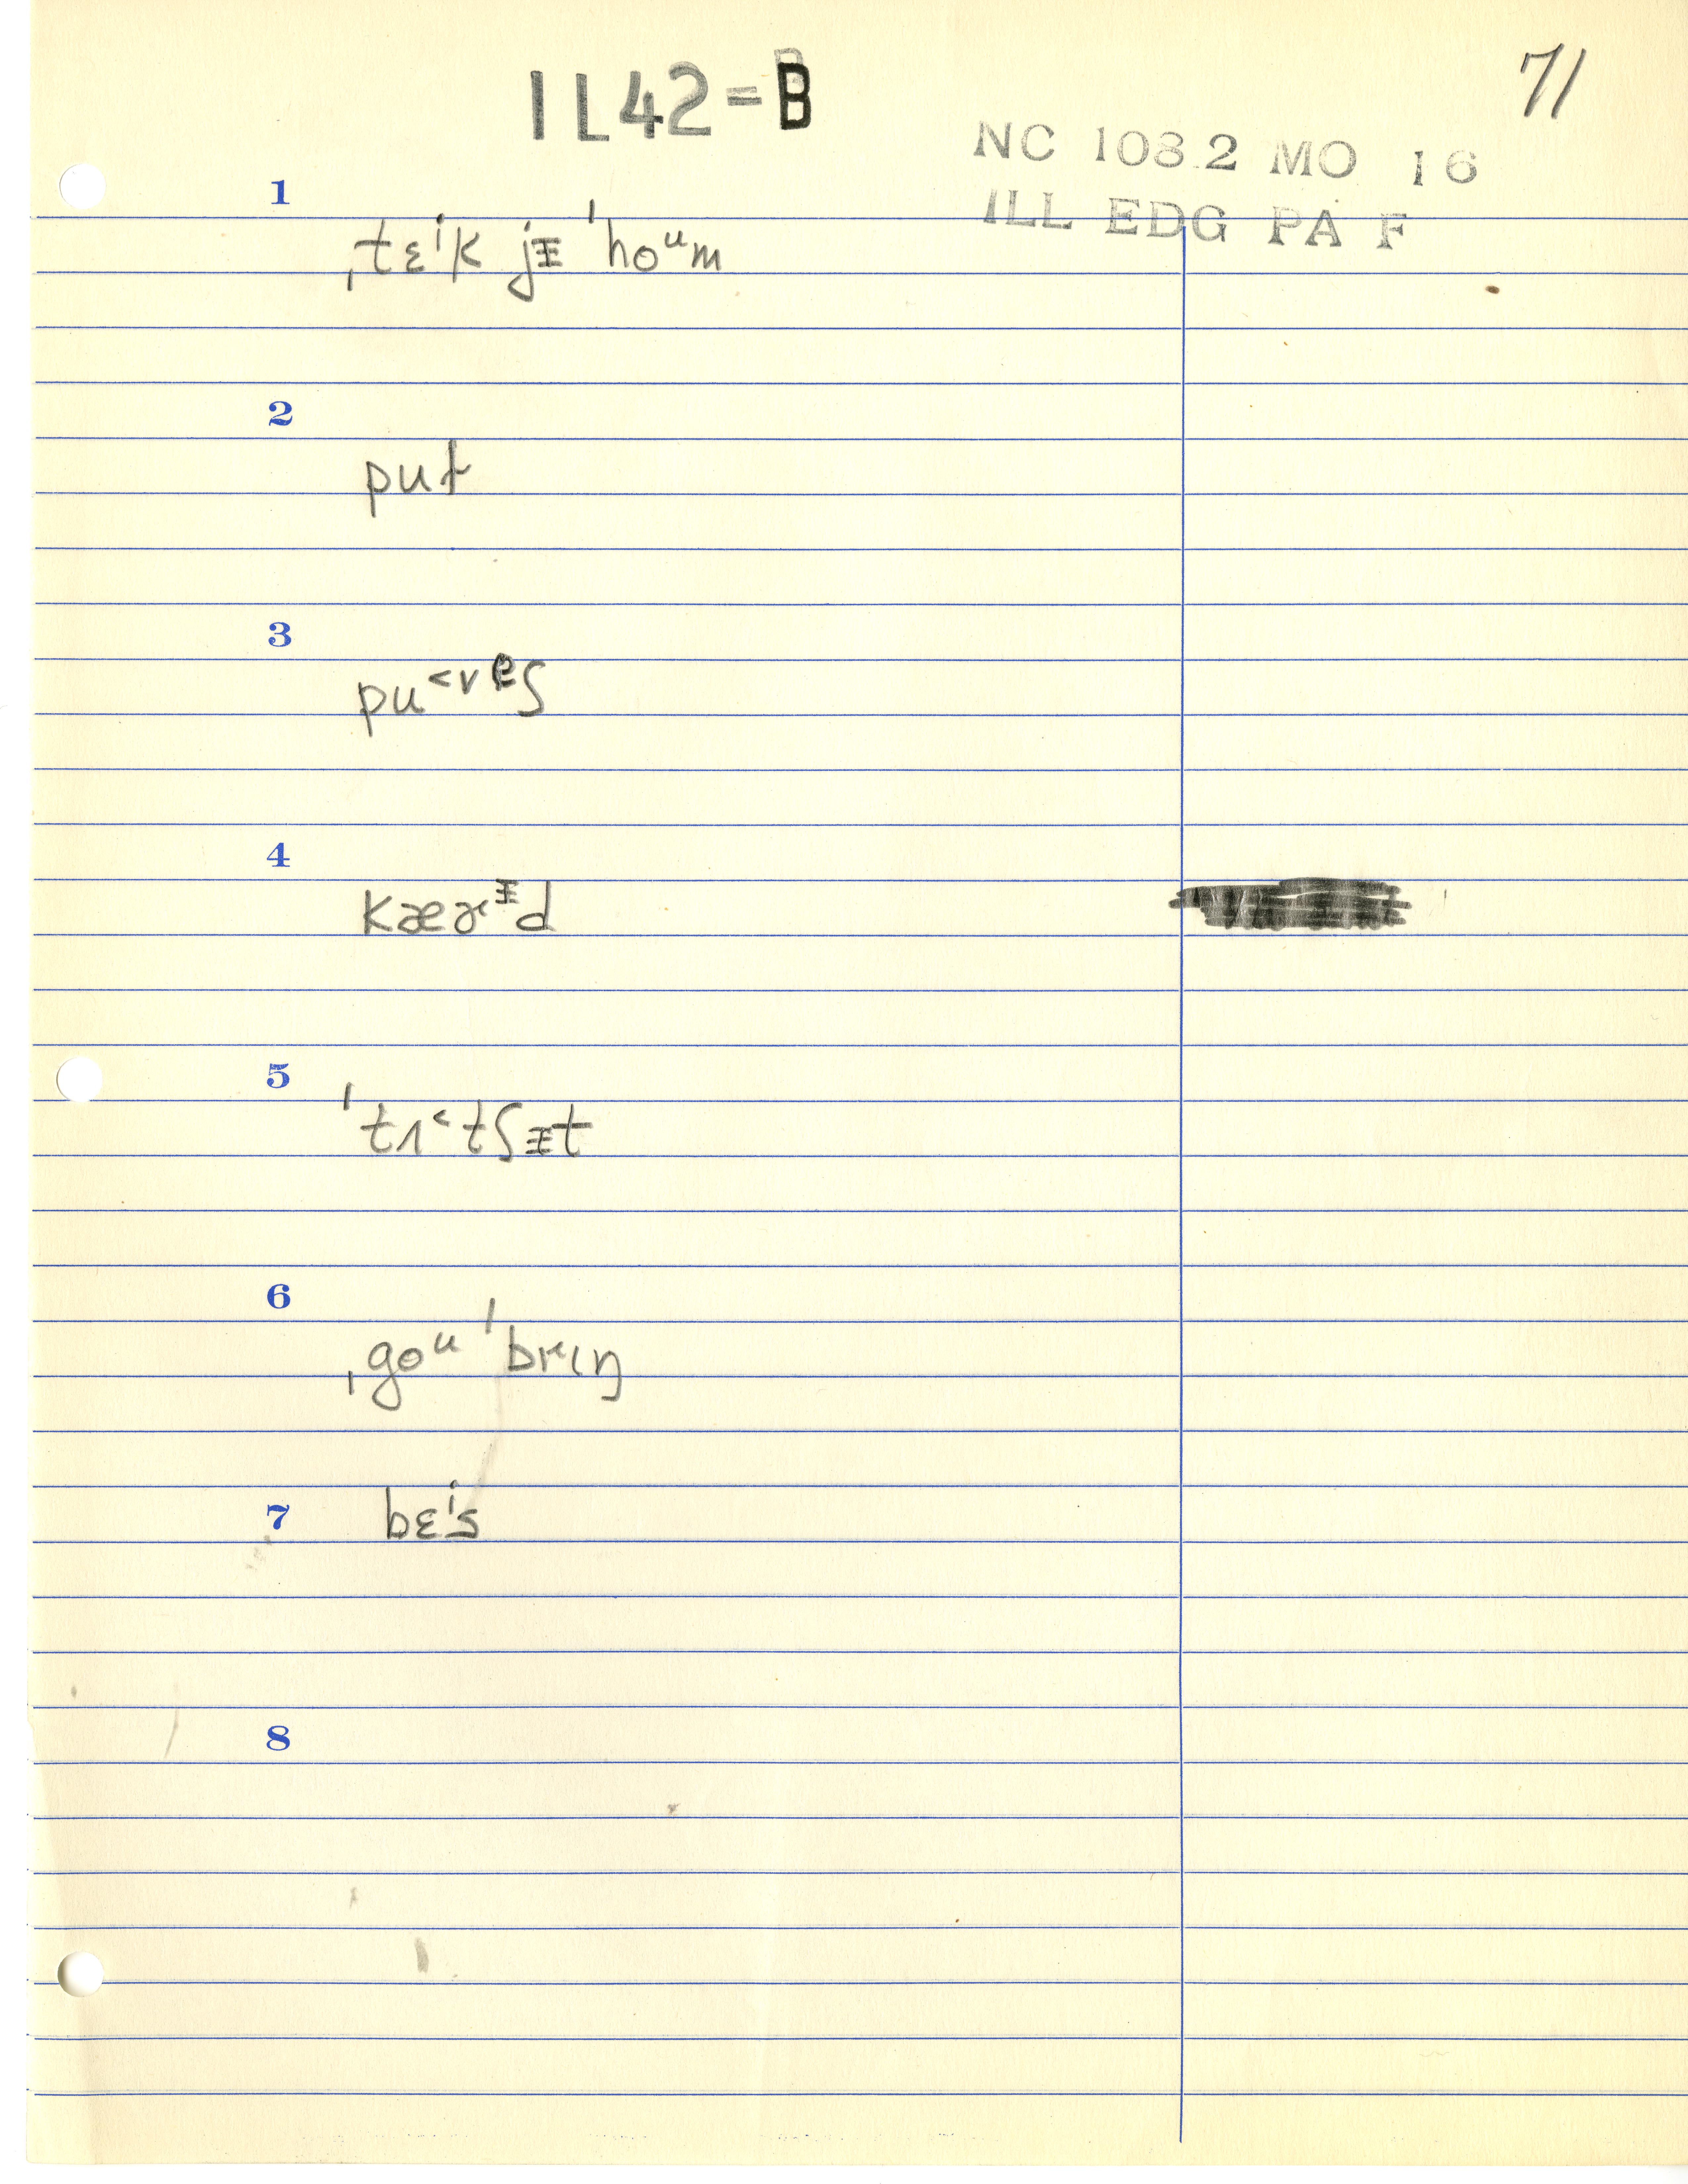 71
IL42=B
NC 108.2 MO 16
ILL EDG PA F
1
ˌtɛⁱk jᵻ ˈhoᵘm
2
put
3
pu˂ᵛᶿʃ
4
kæɚᵻd
5
ˈtʌ˂tʃᵻt
6
ˌgoᵘ ˈbrɪŋ
7
bɛⁱs
8